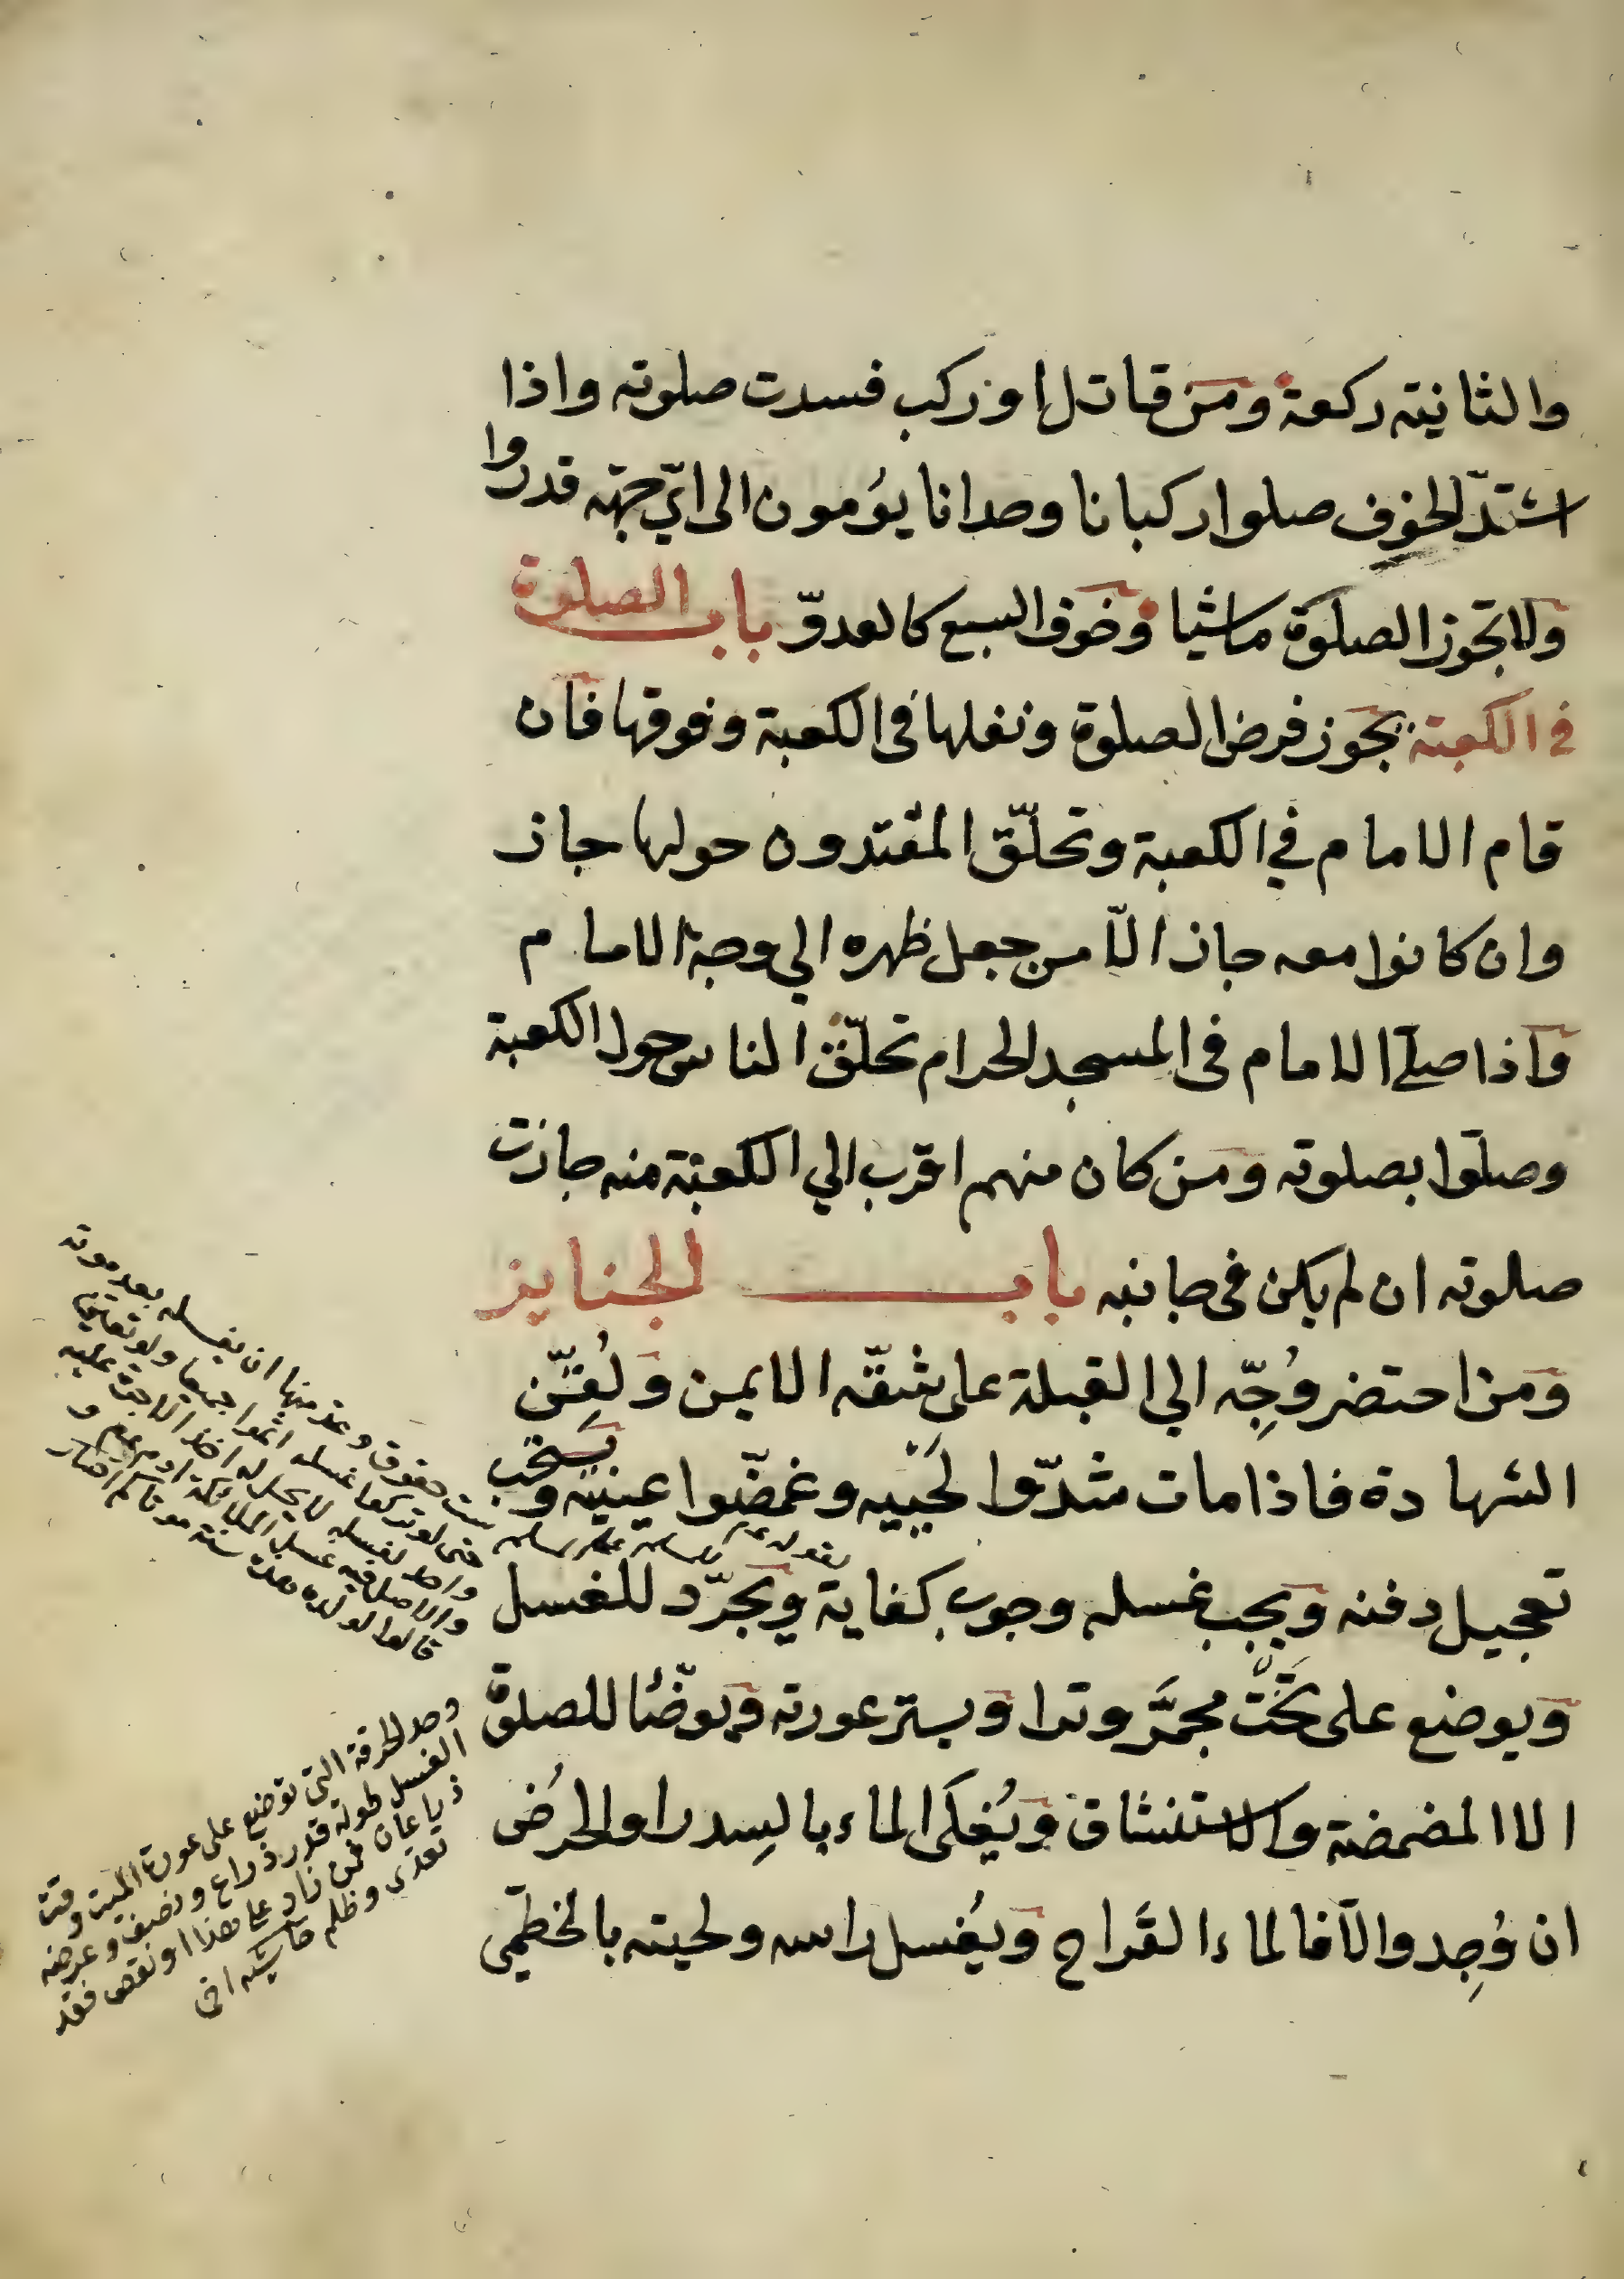 والثانية ركعة ومن قاتل او ركب فسدت صلوته واذا
اشتدّ الخوف صلوا ركبانا وحدانا يؤمون الى ايّ جهة قدروا
ولا تجوز الصلوة ماشيا وخوف السبع كالعدوّ باب الصلوة
فى الكعبة يجوز فرض الصلوة ونفلها فى الكعبة وفوقها فان
قام الامام في الكعبة وتحلّق المقتدون حولها جاز
وان كانوا معه جاز الّا من جعل ظهره الي وجه الامام
واذا صلّى الامام فى المسجد الحرام تحلّق الناس حول الكعبة
وصلّوا بصلوته ومن كان منهم اقرب الي الكعبة منه جازت
صلوته ان لم يكن فى جانبه باب الجنايز
ومن احتضر وُجِّه الي القبلة على شقّه الايمن ولُقِّن
الشهادة فاذا مات شدّوا لَحْيَيه وغمضّوا عينيه ويستحب
تعجيل دفنه ويجب غسله وجوب كفاية ويجرّد للغسل
ويوضع على تَخْت مجمَّر وترا ويستر عورته ويوضّأ للصلوة
الا المضمضة والاستنشاق ويُغلَى الماء بالسِدر او الحُرُض
ان وُجِد والّا فالماء القَراح ويُغسل راسه ولحيته بالخطمّي
حقوق وعدّ منها ان يغسله بعد موته
حتى لو تركوا غسله اثموا جميعا ولو تعيّن
واحد لغسله لا يحل له اخذ الاجرة عليه
والاصل فيه غسل الملائكة آدم عم و
قالوا لولده هذه سنة موتاكم اختيار
وحد الخرقة التى توضع على عورة الميت وقت
الغسل طوله قدر ذراع ونصف وعرضه
ذراعان فمن زاد على هذا او نقص فقد
تعدى وظلم حاشيه اخى